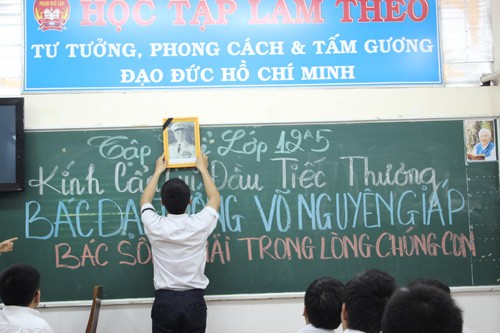 HỌC TẬP LÀM THEO
TƯ TƯỞNG, PHONG CÁCH & TẤM GƯƠNG
ĐẠO ĐỨC HỒ CHÍ MINH
Tập Lớp 12A5
Kính Cẩn Đầu Tiếc Thương
BÁC ĐẠI TƯỚNG VÕ NGUYÊN GIÁP
BÁC SỐNG MÃI TRONG LÒNG CHÚNG CON